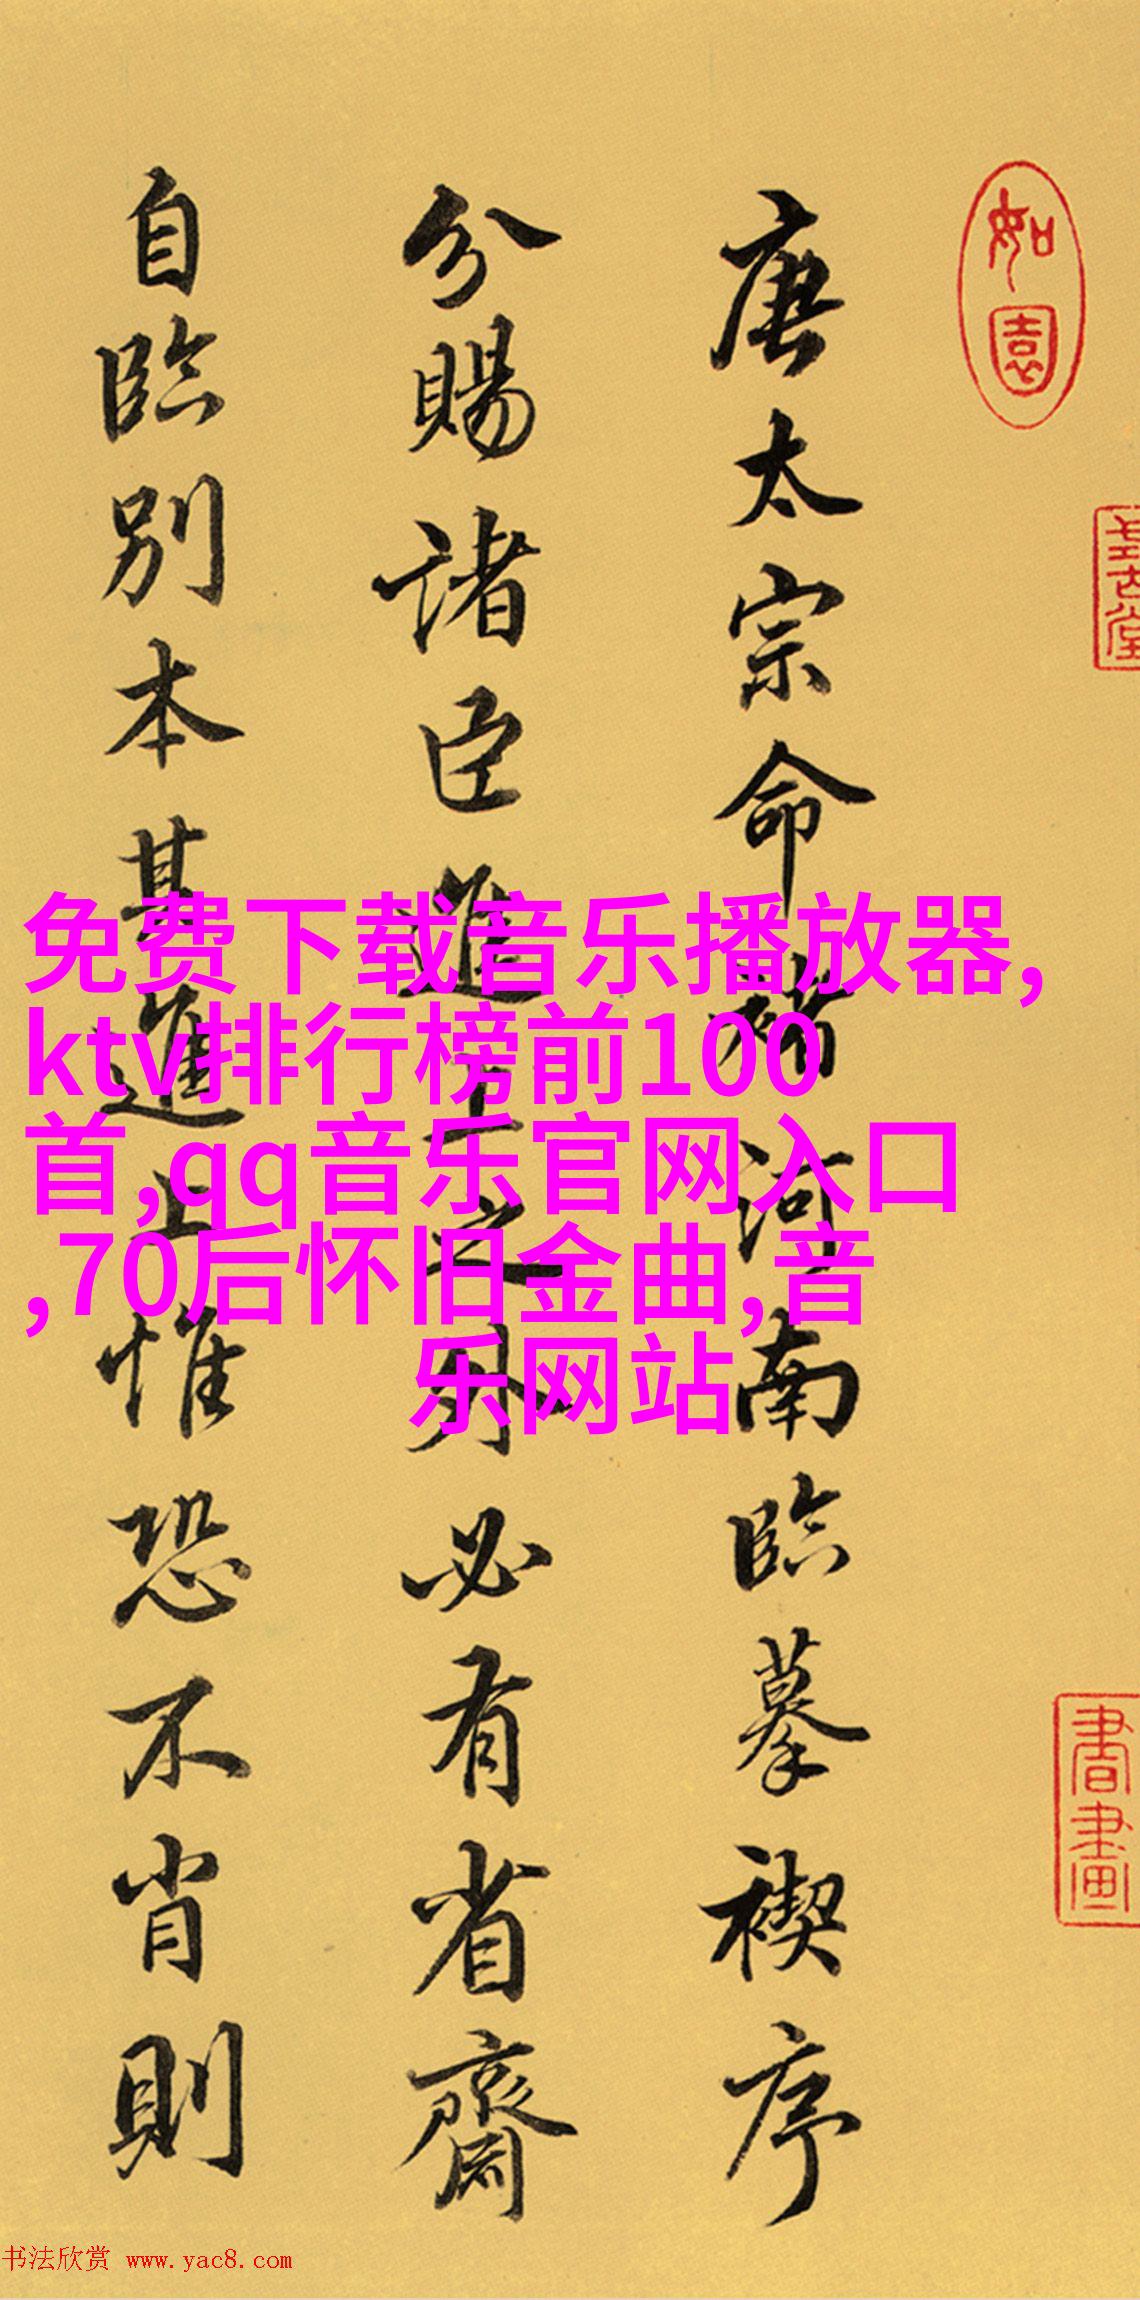 如園
書畫
唐太宗命褚河南臨摹禊序
分賜諸臣進上之外必有省齋
自臨別本其進上惟恐不肖則
免费下载音乐播放器,
ktv排行榜前100
首,qq音乐官网入口
,70后怀旧金曲,音
乐网站
书法欣赏 www.yac8.com